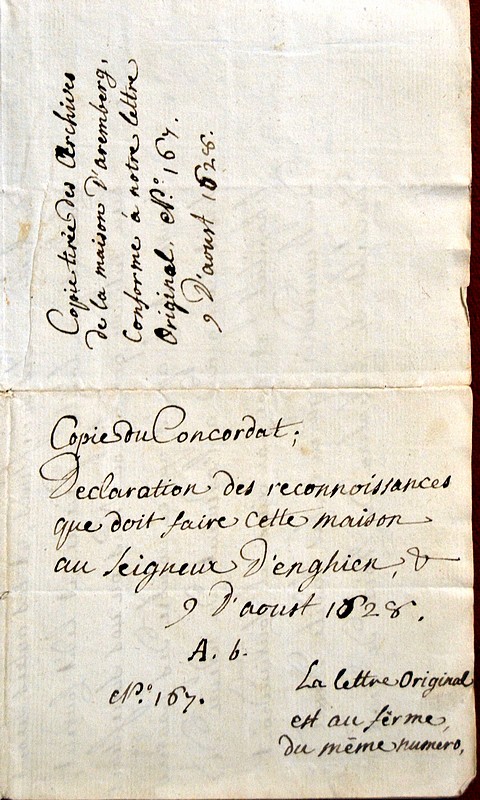 Copie tirée des Archives
de la maison D'aremberg,
Conforme à notre lettre
Original. N.º 167.
9 D'aoust 1628.
Copie du Concordat;
Declaration des reconnoissances
que doit faire Cette maison
au Seigneur D'enghien, &
9 D'aoust 1628.
A. 6.
N.º 167.
La lettre Original
est au férme,
du même numero,